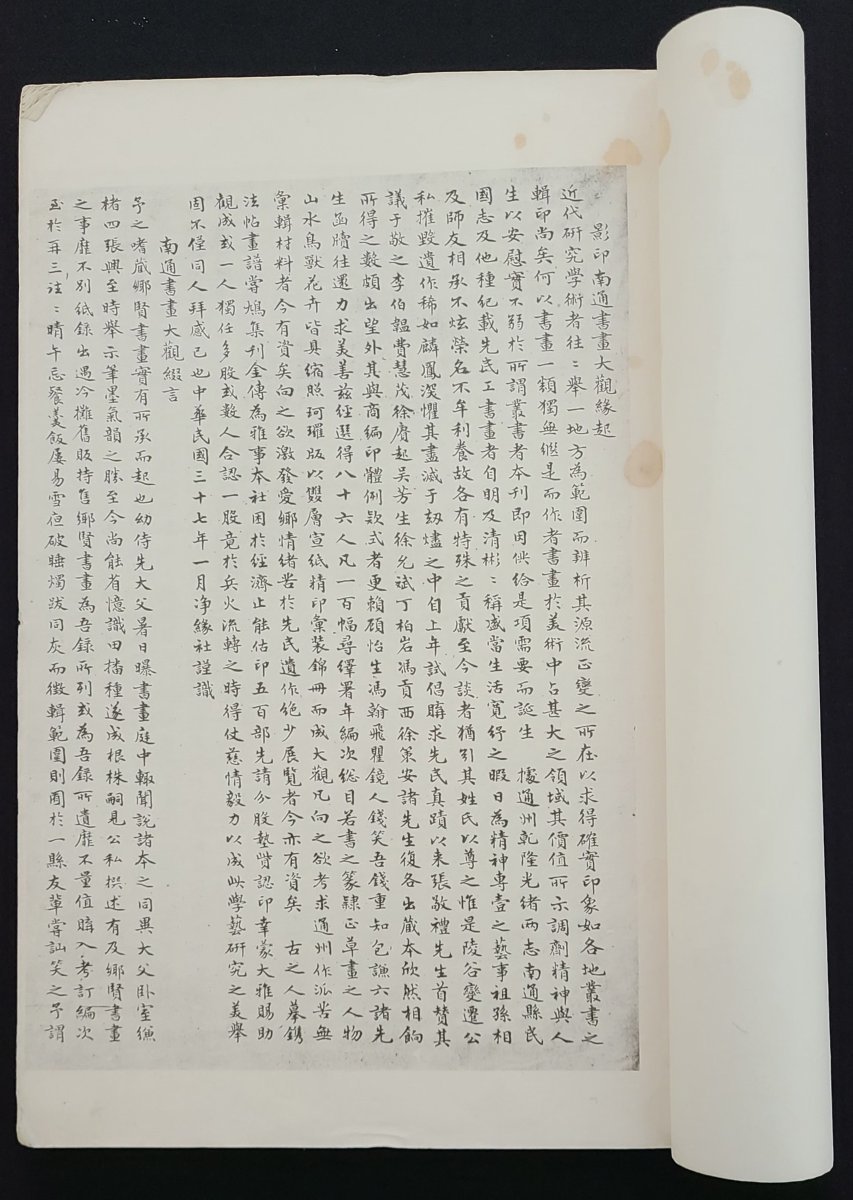 影印南通書畫大觀緣起
近代研究學術者往〻舉一地方為範圍而辨析其源流正變之所在以求得確實印象如各地叢書之
輯印尚矣何以書畫一類獨無繼是而作者書畫於美術中占甚大之領域其價值所示調劑精神與人
生以安慰實不弱於所謂叢書者本刊即因供給是項需要而誕生　據通州乾隆光緒兩志南通縣民
國志及他種紀載先民工書畫者自明及清彬〻稱盛當生活寬紓之暇日為精神專壹之藝事祖孫相
及師友相承不炫榮名不牟利養故各有特殊之貢獻至今談者猶引其姓氏以尊之惟是陵谷變遷公
私摧毀遺作稀如麟鳳深懼其盡滅于劫燼之中自上年試倡購求先民真蹟以來張敬禮先生首贊其
議于敬之李伯韞費慧茂徐賡起吳芳生徐允斌丁柏岩馮貢西徐策安諸先生復各出藏本欣然相餉
所得之數頗出望外其與商編印體例款式者更賴顧怡生馮翰飛瞿鏡人錢笑吾錢重知包謙六諸先
生函牘往還力求美善茲經選得八十六人凡一百幅尋繹署年編次總目若書之篆隸正草畫之人物
山水鳥獸花卉皆具縮照珂瓎版以雙層宣紙精印彙裝錦冊而成大觀凡向之欲考求通州作派苦無
彙輯材料者今有資矣向之欲激發愛鄉情緒苦於先民遺作絕少展覽者今亦有資矣　古之人摹鐫
法帖畫譜嘗鳩集刊全傳為雅事本社困於經濟止能估印五百部先請分股墊貲認印幸蒙大雅賜助
觀成或一人獨任多股或數人合認一股竟於兵火流轉之時得仗慈情毅力以成此學藝研究之美舉
固不僅同人拜感已也中華民國三十七年一月净緣社謹識
南通書畫大觀綴言
予之嗜蔵鄉賢書畫實有所承而起也幼侍先大父暑日曝書畫庭中輒聞說諸本之同異大父卧室縑
楮四張興至時舉示筆墨氣韻之勝至今尚能省憶識田播種遂成根株嗣見公私撰述有及鄉賢書畫
之事靡不別紙錄出遇冷攤舊販持售鄉賢書畫為吾錄所列或為吾錄所遺靡不量值購入考訂編次
至於再三往〻晴午忘餐羹飯屢易雪夜破睡燭跋同灰而徵輯範圍則囿於一縣友輩嘗訕笑之予謂